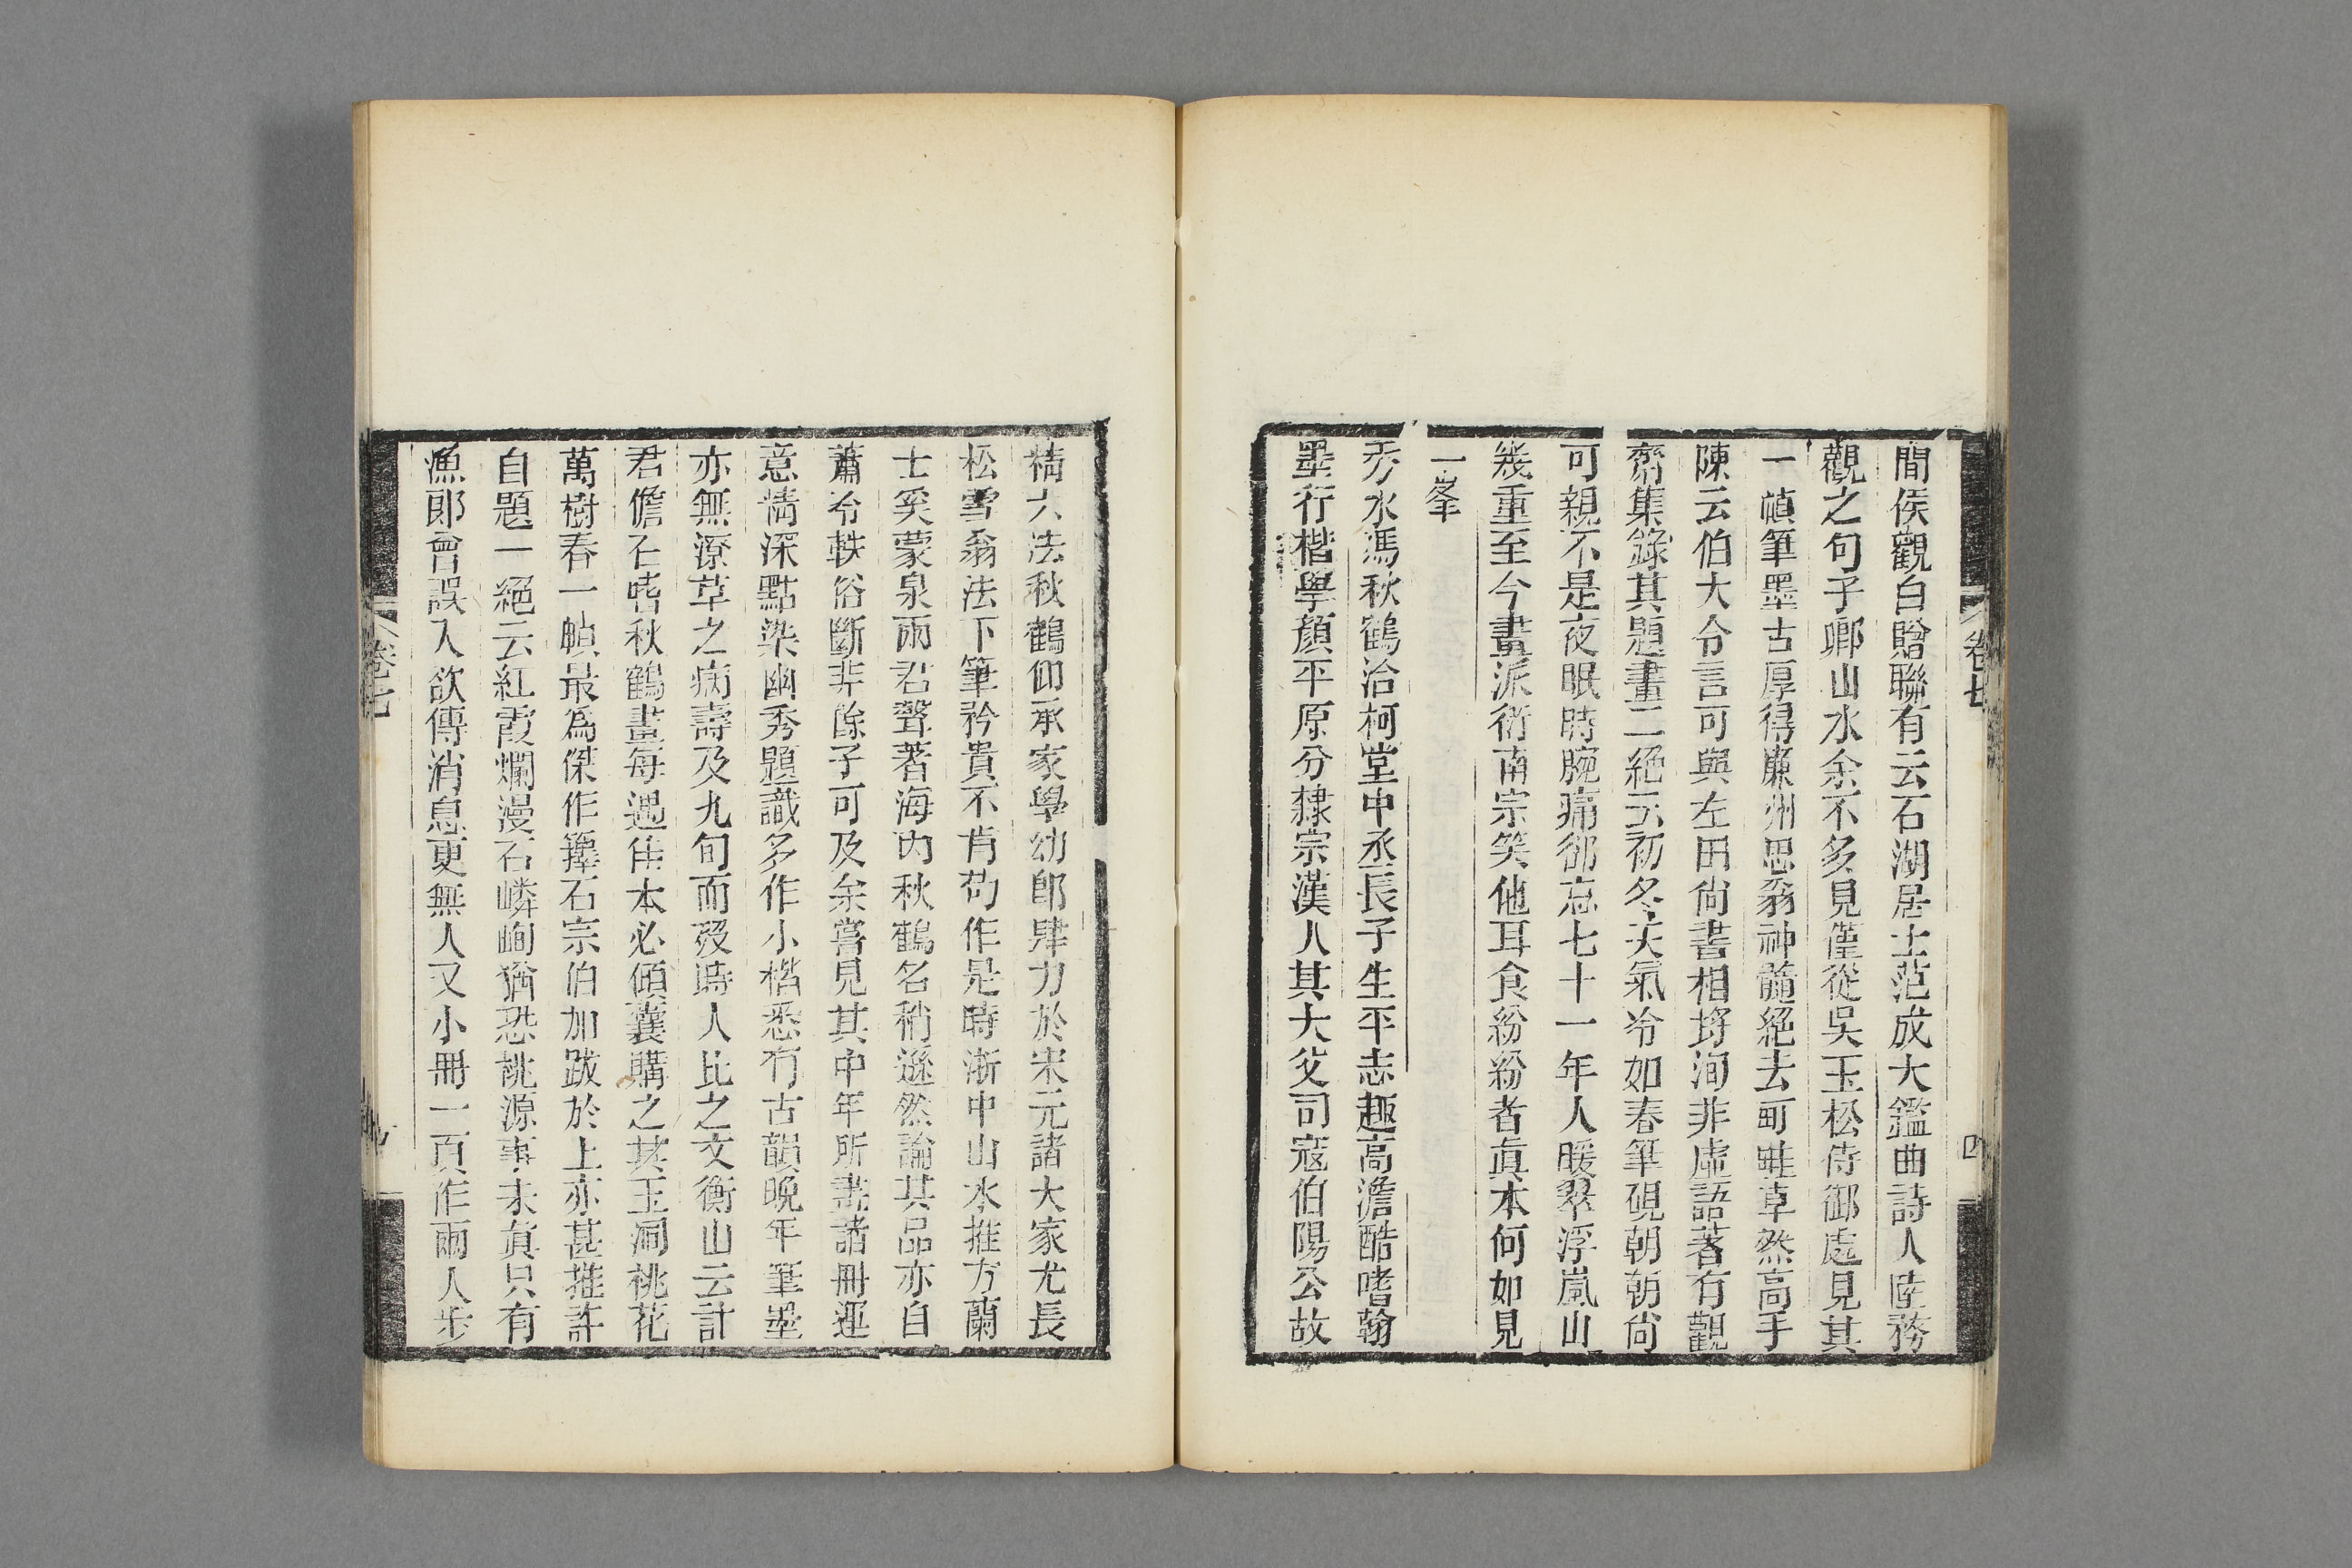 間侯觀白贈聯有云石湖居士范成大鑑曲詩人陸務
觀之句子卿山水余不多見僅從吳玉松侍御處見其
一幀筆墨古厚得廉州思翁神髓絕去町畦草然高手
陳云伯大令言可與左田尙書相捋洵非虛語著有觀
齋集錄其題畫二絕云初冬天氣冷如春筆硯朝朝尙
可親不是夜眠時腕痛卻忘七十一年人暖翠浮嵐山
幾重至今畫派衍南宗笑他耳食紛紛者眞本何如見
一峯
秀水馮秋鶴洽柯堂中丞長子生平志趣高澹酷嗜翰
墨行楷學顏平原分隸宗漢人其大父司寇伯陽公故
卷七
四
精六法秋鶴仰承家學幼卽肆力於宋元諸大家尤長
松雪翁法下筆矜貴不肯苟作是時浙中山水推方蘭
士奚蒙泉兩君聲著海內秋鶴名稍遜然論其品亦自
蕭冷軼俗斷非餘子可及余嘗見其中年所畫諸冊運
意淸深點染幽秀題識多作小楷悉有古韻晚年筆墨
亦無潦草之病壽及九旬而歿時人比之文衡山云計
君儋石嗜秋鶴畫每遇佳本必傾囊購之其玉洞桃花
萬樹春一幀最爲傑作籜石宗伯加跋於上亦甚推許
自題一絕云紅霞爛漫石嶙峋猶恐桃源事未眞只有
漁郞曾誤入欲傳消息更無人又小冊一頁作兩人步
卷七